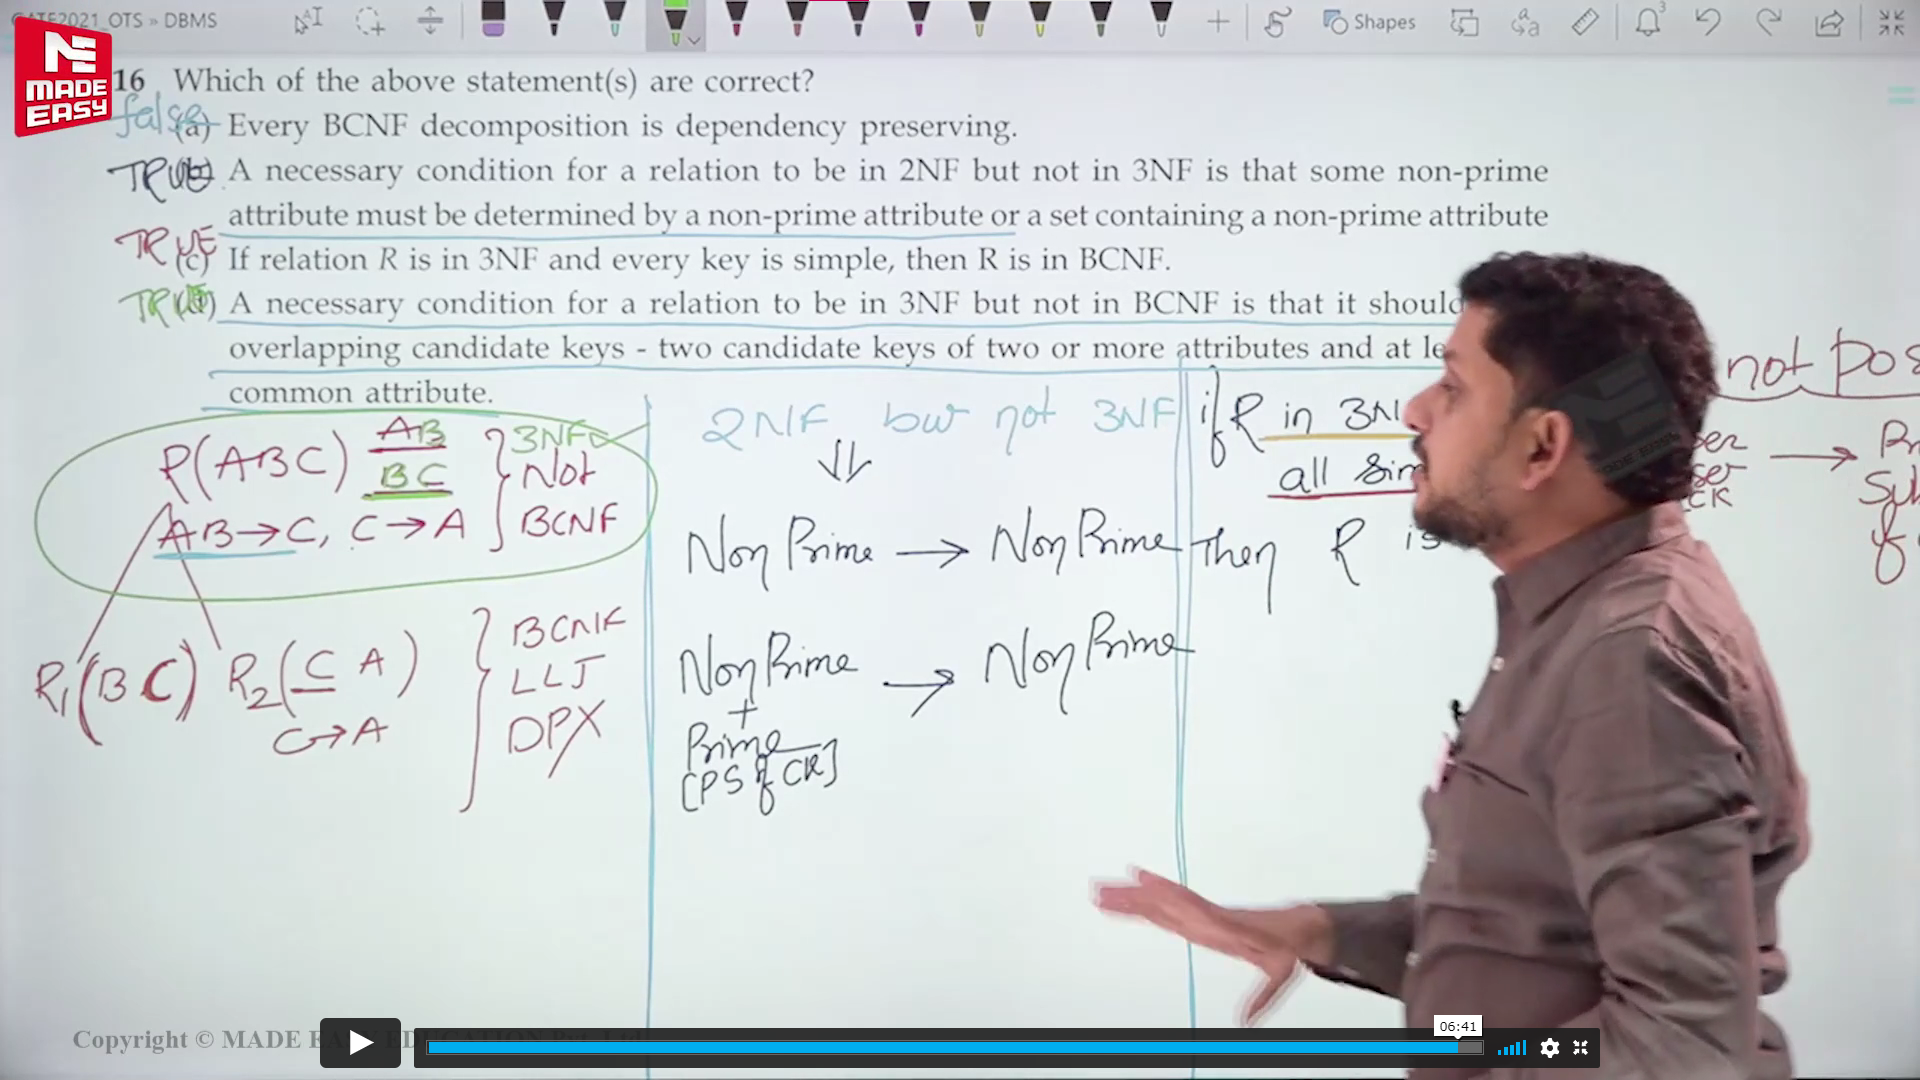 GATE2021_OTS » DBMS
Shapes
3
ME
MADE
EASY
16 Which of the above statement(s) are correct?
false (a) Every BCNF decomposition is dependency preserving.
TRUE (b) A necessary condition for a relation to be in 2NF but not in 3NF is that some non-prime
attribute must be determined by a non-prime attribute or a set containing a non-prime attribute
TRUE (c) If relation R is in 3NF and every key is simple, then R is in BCNF.
TRUE A necessary condition for a relation to be in 3NF but not in BCNF is that it should
overlapping candidate keys - two candidate keys of two or more attributes and at le
common attribute.
R(ABC) AB
BC
AB→C, C→A
3NF
Not
BCNF
R1(BC) R2(C A)
C→A
BCNF
LLJ
DPX
2NF but not 3NF
Non Prime → Non Prime
Non Prime → Non Prime
+
Prime
[PS of CK]
if R in 3N
all Sim
Then R is
not pos
CK
→
of
Copyright © MADE EASY EDUCATION Pvt. Ltd.
06:41